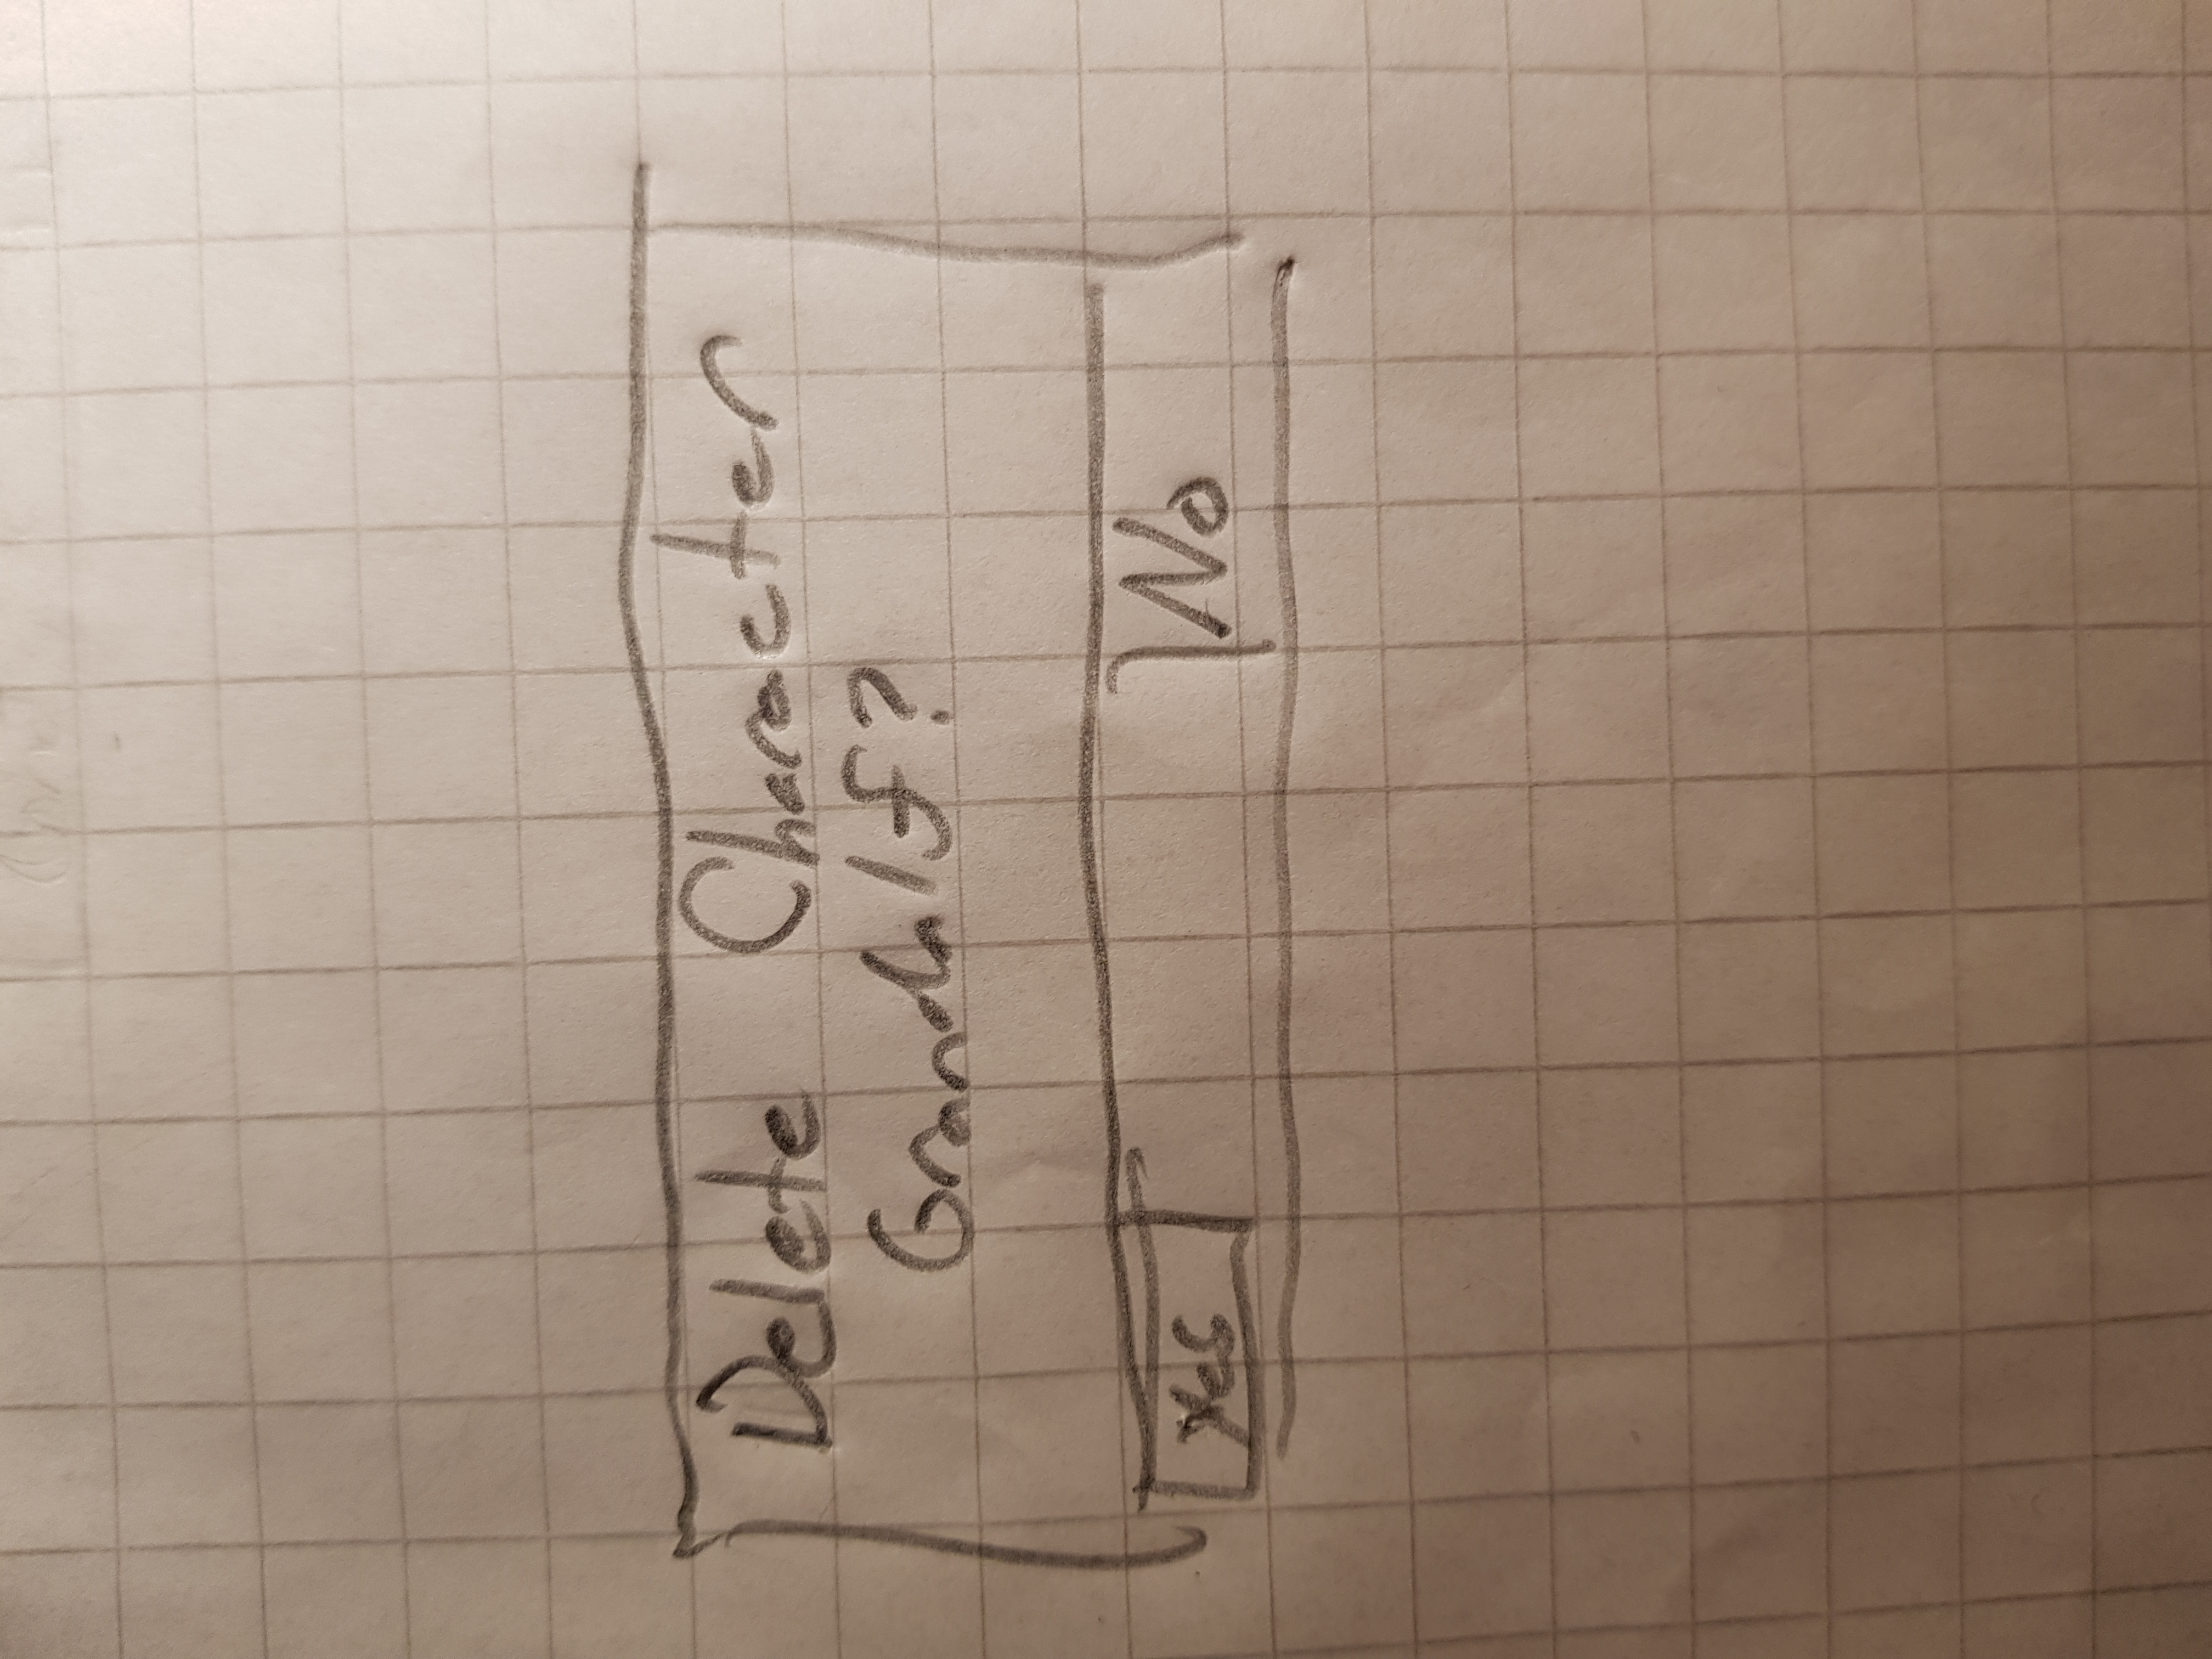 Delete Character
Grandalf?
Yes
No